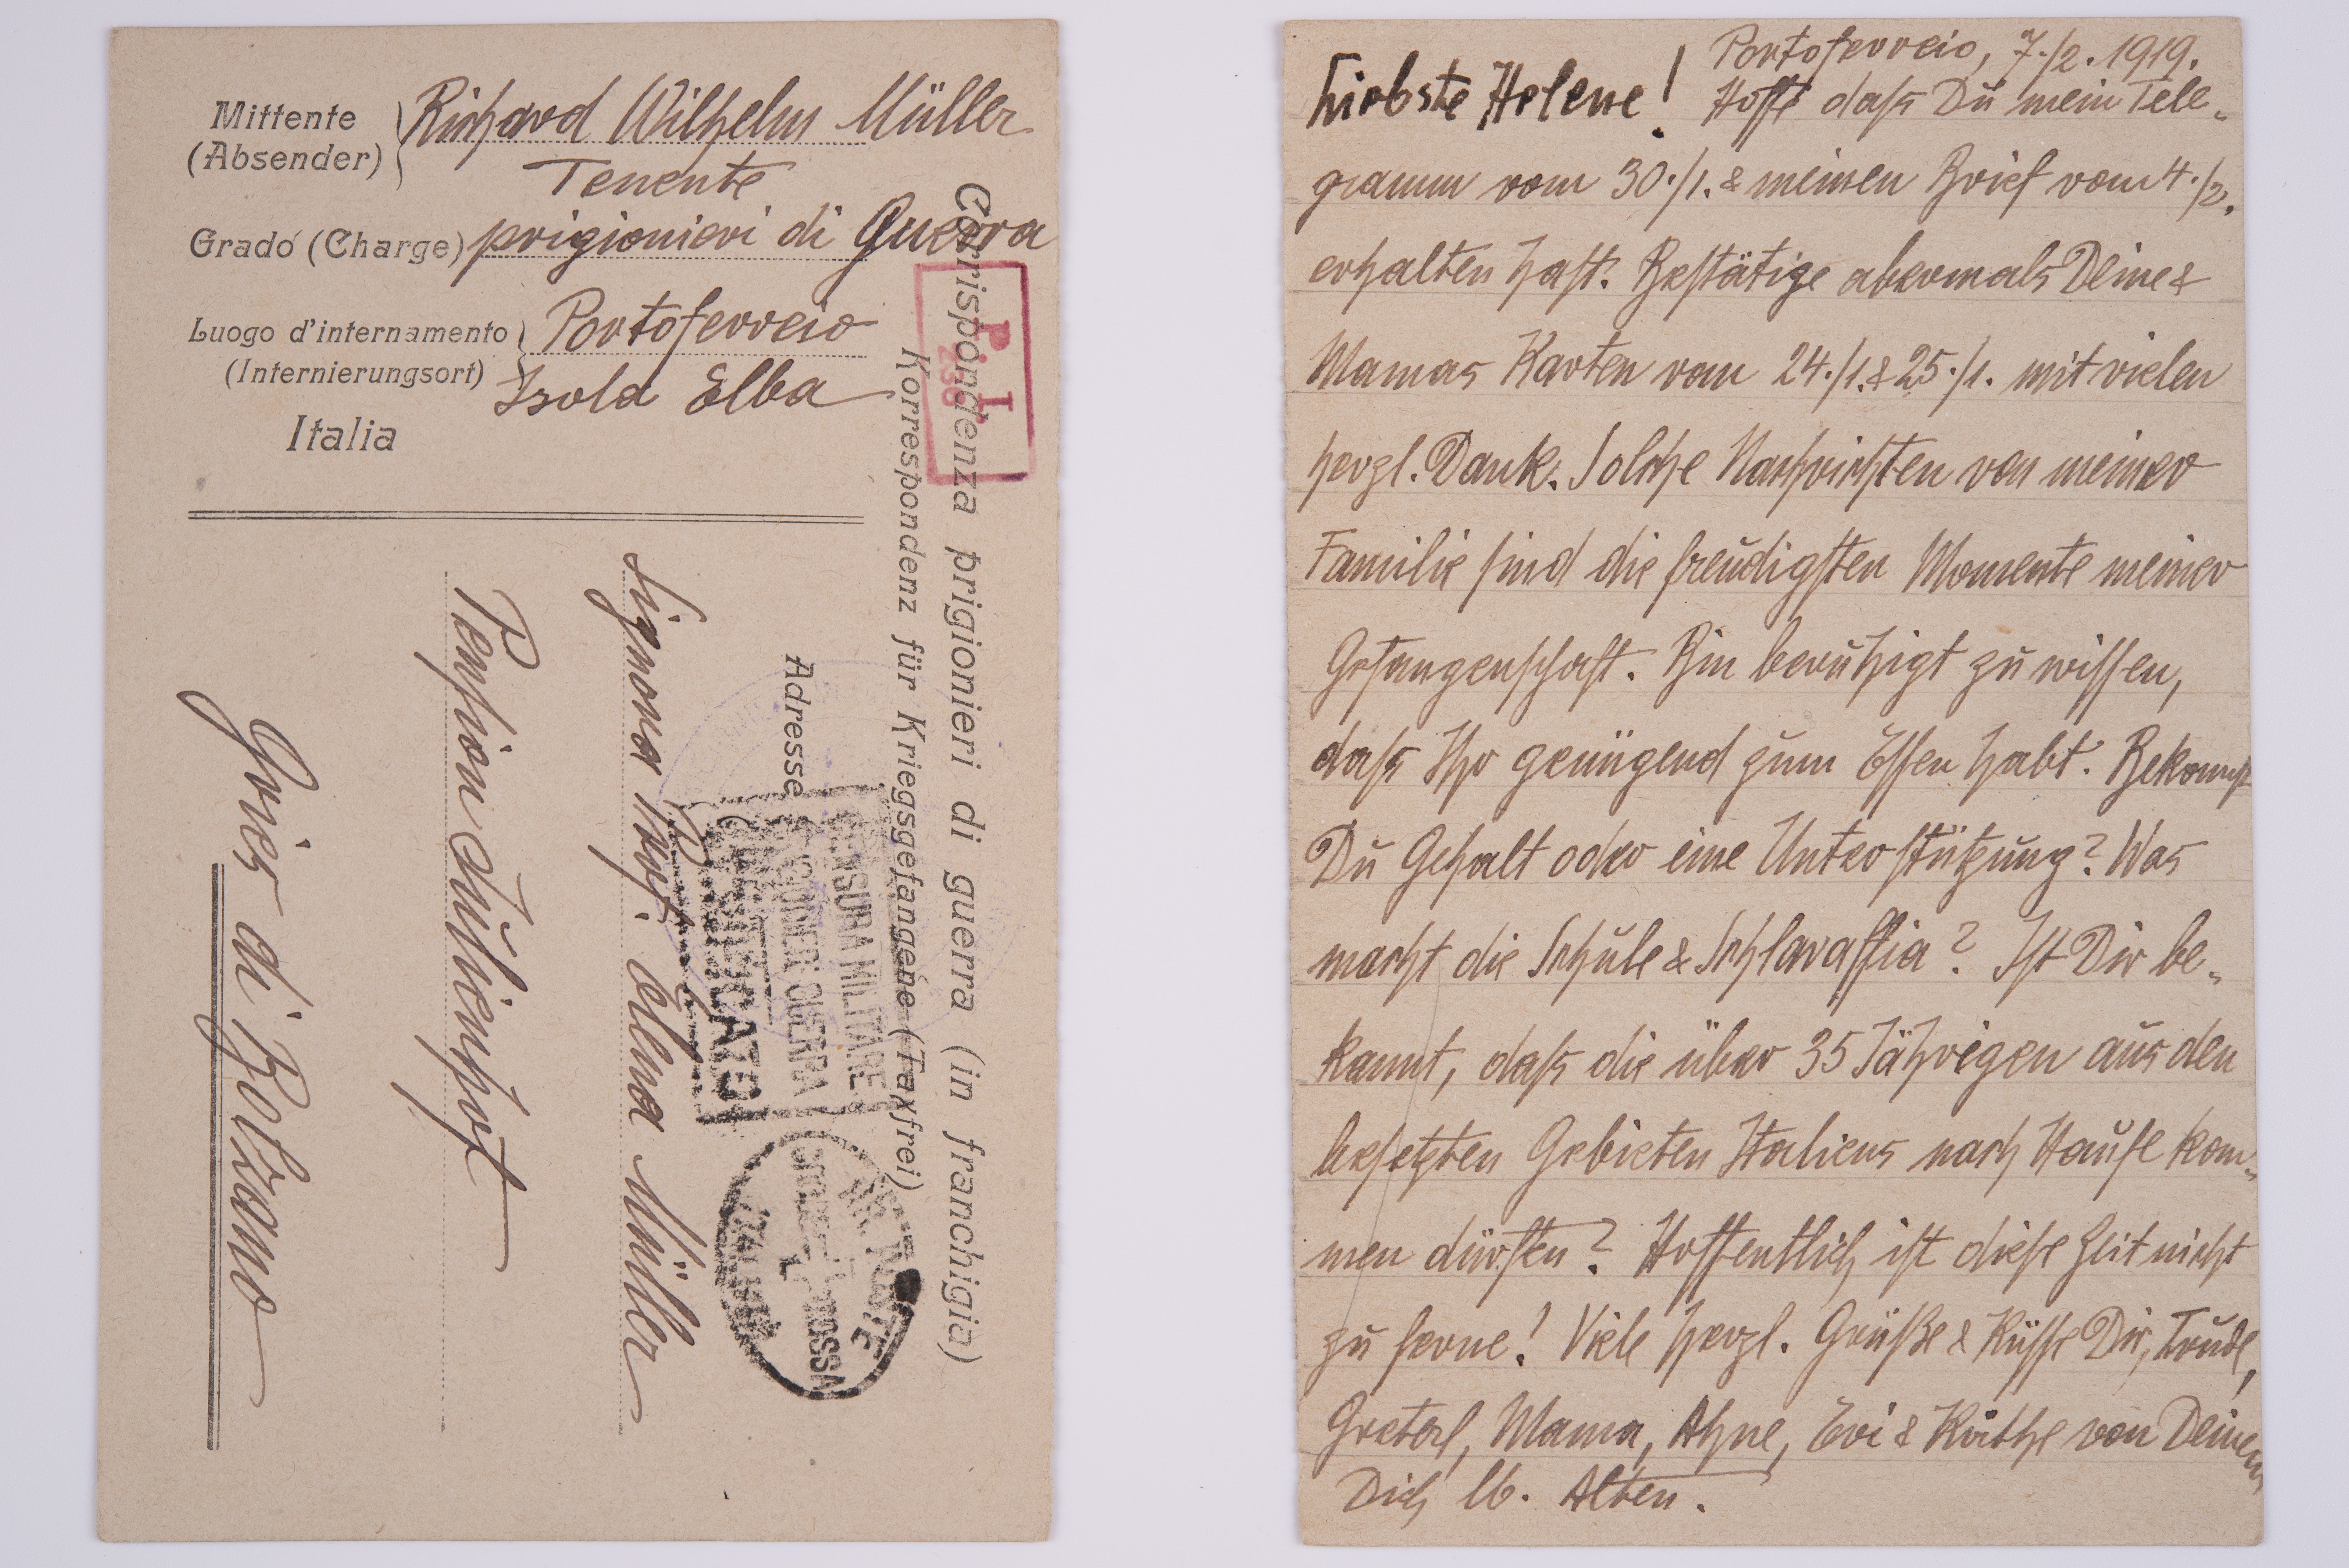 Mittente
(Absender)
Richard Wilhelm Müller
Tenente
Grado (Charge) prigionieri di Guerra
Luogo d'internamento
(Internierungsort)
Portoferreio
Isola Elba
Italia
P. I.
Corrispondenza prigionieri di guerra (in franchigia)
Korrespondenz für Kriegsgefangene (Taxfrei)
Adresse
CENSURA MILITARE
PRIGIONIERI GUERRA
VERIFICATO
CROCE ROSSA
ITALIANA
Signora Prof. Elena Müller
Pension Julienhof
Gries di Bolzano
Portoferreio, 7./2. 1919.
Liebste Helene! Hoffe daß Du mein Tele-
gramm vom 30./1. & meinen Brief vom 4./2.
erhalten hast. Bestätige abermals Deine &
Mamas Karten vom 24./1. & 25./1. mit vielen
herzl. Dank. Solche Nachrichten von meiner
Familie sind die freudigsten Momente meiner
Gefangenschaft. Bin beruhigt zu wissen,
daß Ihr genügend zum Essen habt. Bekommst
Du Gehalt oder eine Unterstützung? Was
macht die Schule & Schlaraffia? Ist Dir be-
kannt, daß die über 35 Jährigen aus den
besetzten Gebieten Italiens nach Hause kom-
men dürfen? Hoffentlich ist diese Zeit nicht
zu ferne! Viele herzl. Grüße & Küsse Dir, Trude,
Greterl, Mama, Ahne, Evi & Käthe von Deinem
Dich lb. Alten.